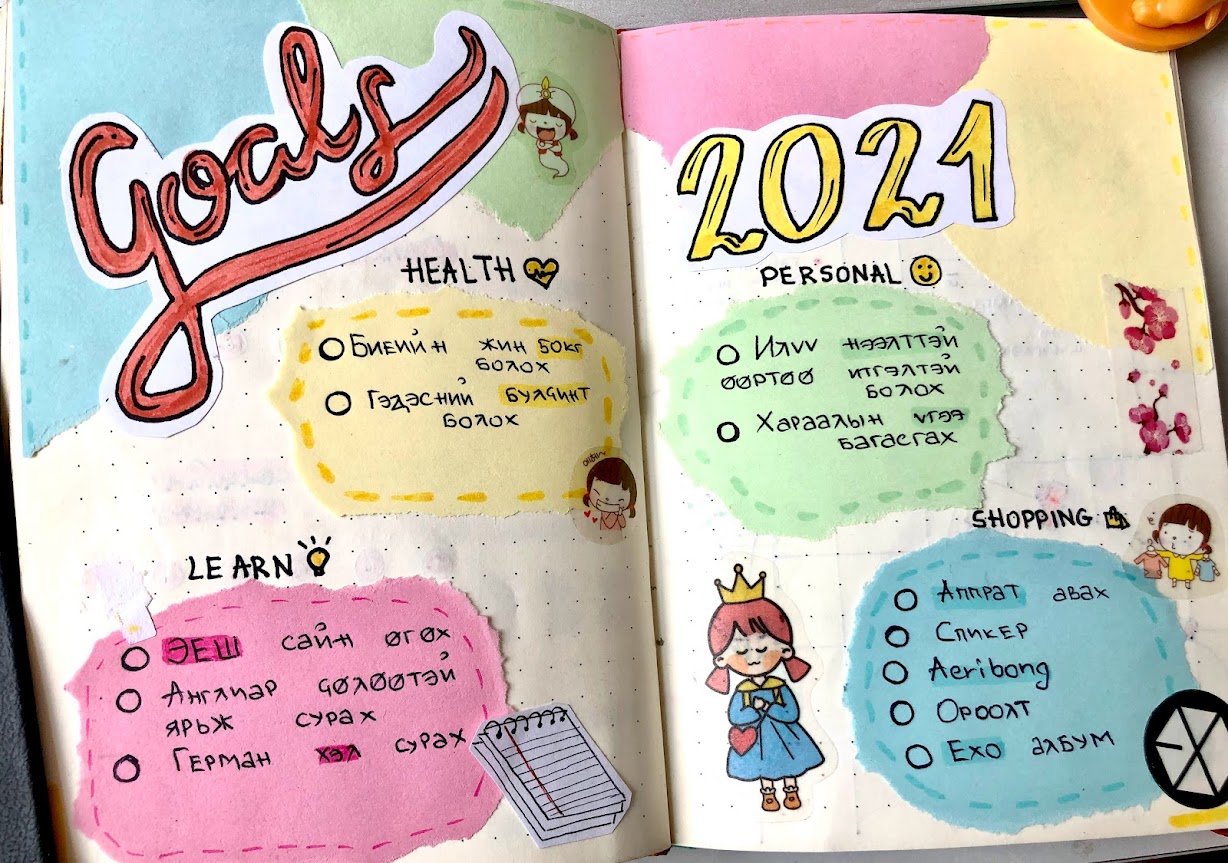 Goals
HEALTH
Биеийн жин 50кг
болох
Гэдэсний булчинт
болох
LEARN
ЭЕШ сайн өгөх
Англиар чөлөөтэй
ярьж сурах
Герман хэл сурах
2021
PERSONAL
Илүү нээлттэй
өөртөө итгэлтэй
болох
Хараалын үгээ
багасгах
SHOPPING
Аппрат авах
Спикер
Aeribong
Ороолт
Exo албум
EX